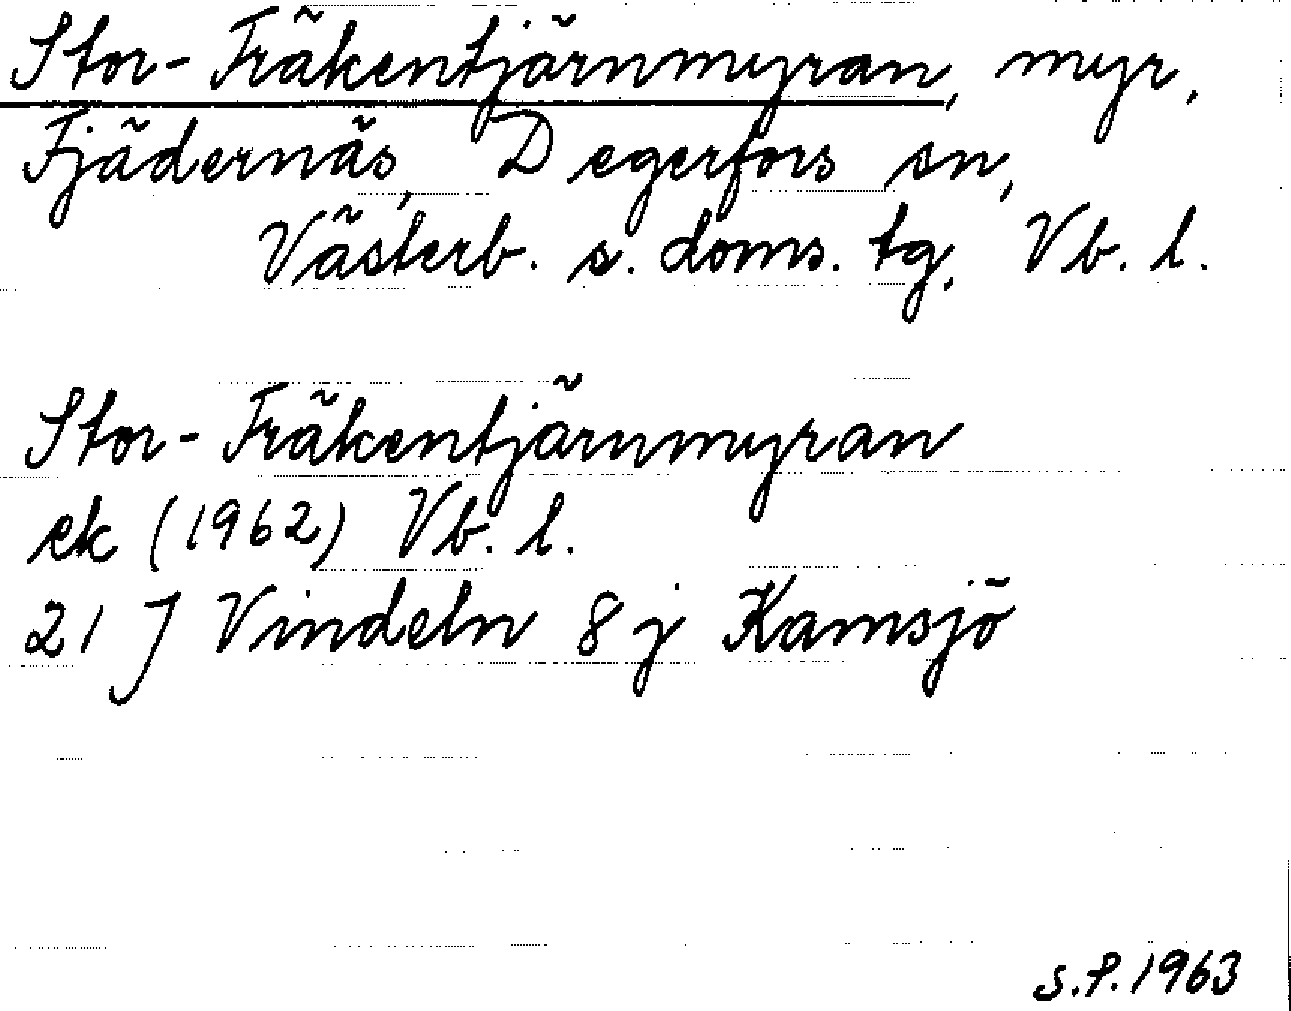 Stor-Fräkentjärnmyran, myr,
Fjädernäs, Degerfors sn,
Västerb. s. doms. tg, Vb. l.
Stor-Fräkentjärnmyran
ek (1962) Vb. l.
21 J Vindeln 8 j Kamsjö
S.P. 1963